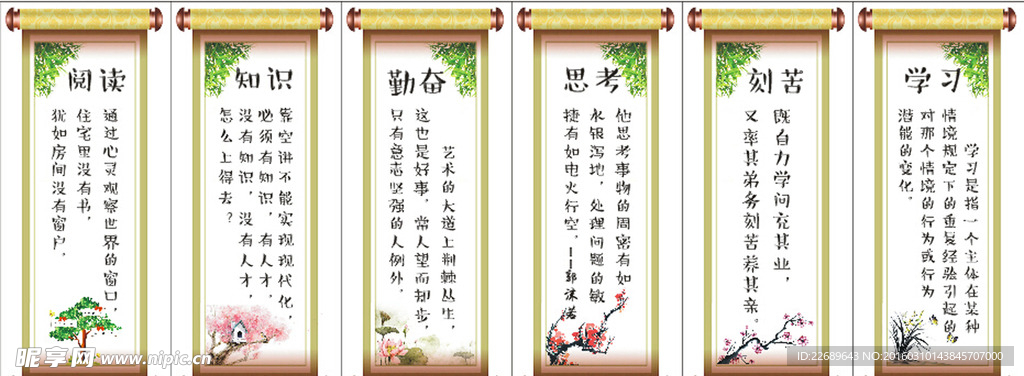 阅读
通过心灵观察世界的窗口,
住宅里没有书,
犹如房间没有窗户,
知识
靠空讲不能实现现代化,
必须有知识,有人才,
没有知识,没有人才,
怎么上得去?
勤奋
艺术的大道上荆棘丛生,
这也是好事,常人望而却步,
只有意志坚强的人例外,
思考
他思考事物的周密有如
水银泻地,处理问题的敏
捷有如电火行空,——郭沫若
刻苦
既自力学问充其业,
又率其弟务刻苦养其亲。
学习
学习是指一个主体在某种
情境规定下的重复经验引起的
对那个情境的行为或行为
潜能的变化。
昵享网 www.nipic.cn
ID:22689643 NO:20160310143845707000